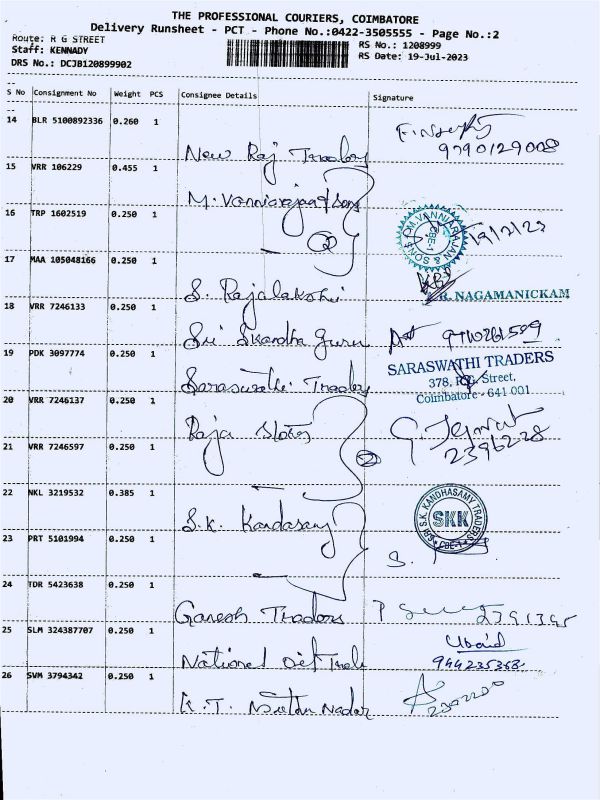 THE PROFESSIONAL COURIERS, COIMBATORE
Delivery Runsheet - PCT - Phone No.:0422-3505555 - Page No.:2
Route: R G STREET
RS No.: 1208999
Staff: KENNADY
RS Date: 19-Jul-2023
DRS No.: DCJB120899902
S No Consignment No Weight PCS Consignee Details Signature
14 BLR 5100892336 0.260 1
New Raj Traders
9790129008
15 VRR 106229 0.455 1
M. Vanniarajan & Sons
16 TRP 1602519 0.250 1
2
M. VANNIARAJAN & SONS
CBE-1
17 MAA 105048166 0.250 1
S. Rajalakshi
R. NAGAMANICKAM
18 VRR 7246133 0.250 1
Sri Skandha Guru
19 PDK 3097774 0.250 1
Saraswathi Traders
SARASWATHI TRADERS
378, R.G. Street,
Coimbatore - 641 001
20 VRR 7246137 0.250 1
Raja Stores
2396228
21 VRR 7246597 0.250 1
2
22 NKL 3219532 0.385 1
S.K. Kandasamy
SRI S.K. KANDHASAMY TRADERS
SKK
CBE-1
23 PRT 5101994 0.250 1
S.
24 TDR 5423638 0.250 1
Ganesh Traders
2391395
25 SLM 324387707 0.250 1
National
Ubaid
944235368
26 SVM 3794342 0.250 1
K. T. Nadar